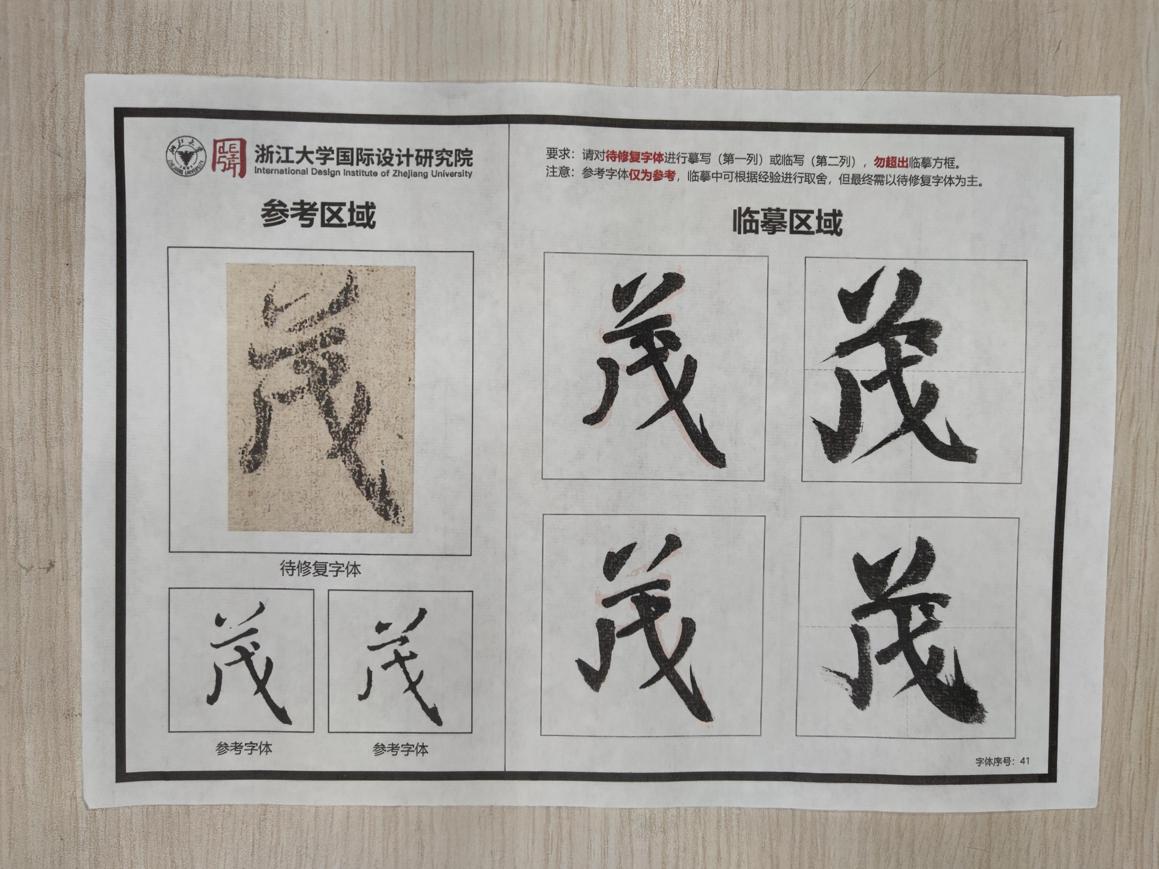 浙江大学国际设计研究院
International Design Institute of Zhejiang University
参考区域
茂
待修复字体
茂
茂
参考字体
参考字体
要求：请对待修复字体进行摹写（第一列）或临写（第二列），勿超出临摹方框。
注意：参考字体仅为参考，临摹中可根据经验进行取舍，但最终需以待修复字体为主。
临摹区域
茂
茂
茂
茂
字体序号：41